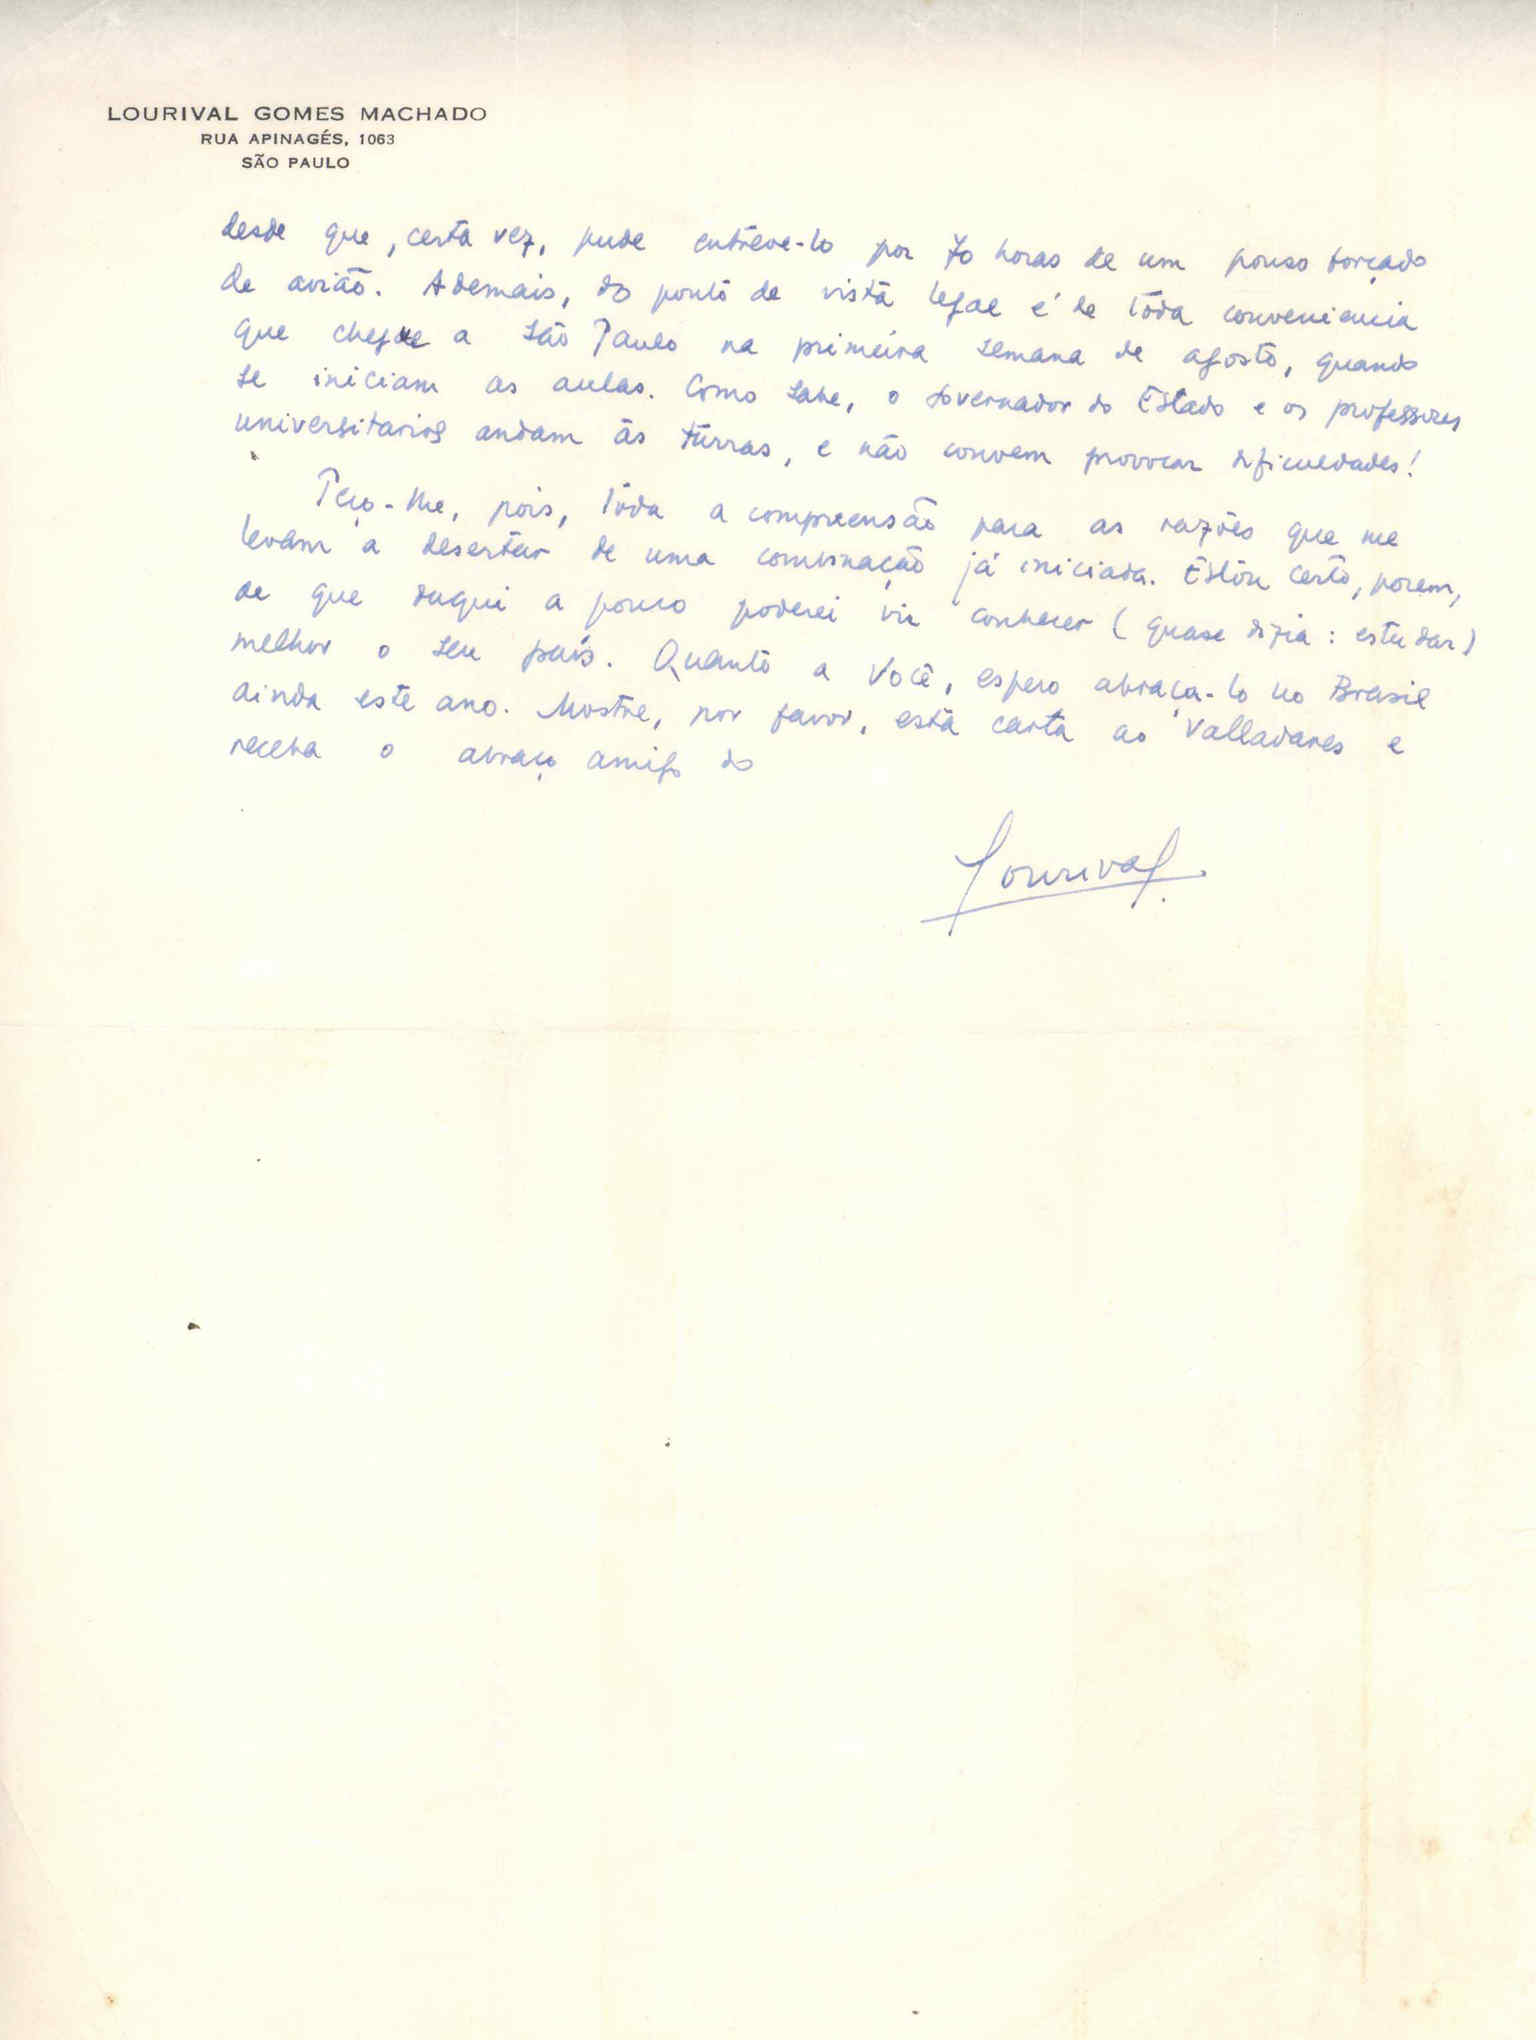 LOURIVAL GOMES MACHADO
RUA APINAGÉS, 1063
SÃO PAULO
desde que, certa vez, pude entrêve-lo por 70 horas de um pouso forçado
de avião. Ademais, do ponto de vista legal é de tôda conveniencia
que chegue a São Paulo na primeira semana de agosto, quando
se iniciam as aulas. Como sabe, o Governador do Estado e os professores
universitarios andam às turras, e não convem provocar dificuldades!
Peço-lhe, pois, tôda a compreensão para as razões que me
levam a desertar de uma combinação já iniciada. Estou certo, porem,
de que daqui a pouco poderei vir conhecer (quase dizia: estudar)
melhor o seu país. Quanto a Você, espero abraça-lo no Brasil
ainda este ano. Mostre, por favor, esta carta ao Valladares e
receba o abraço amigo do
Lourival.